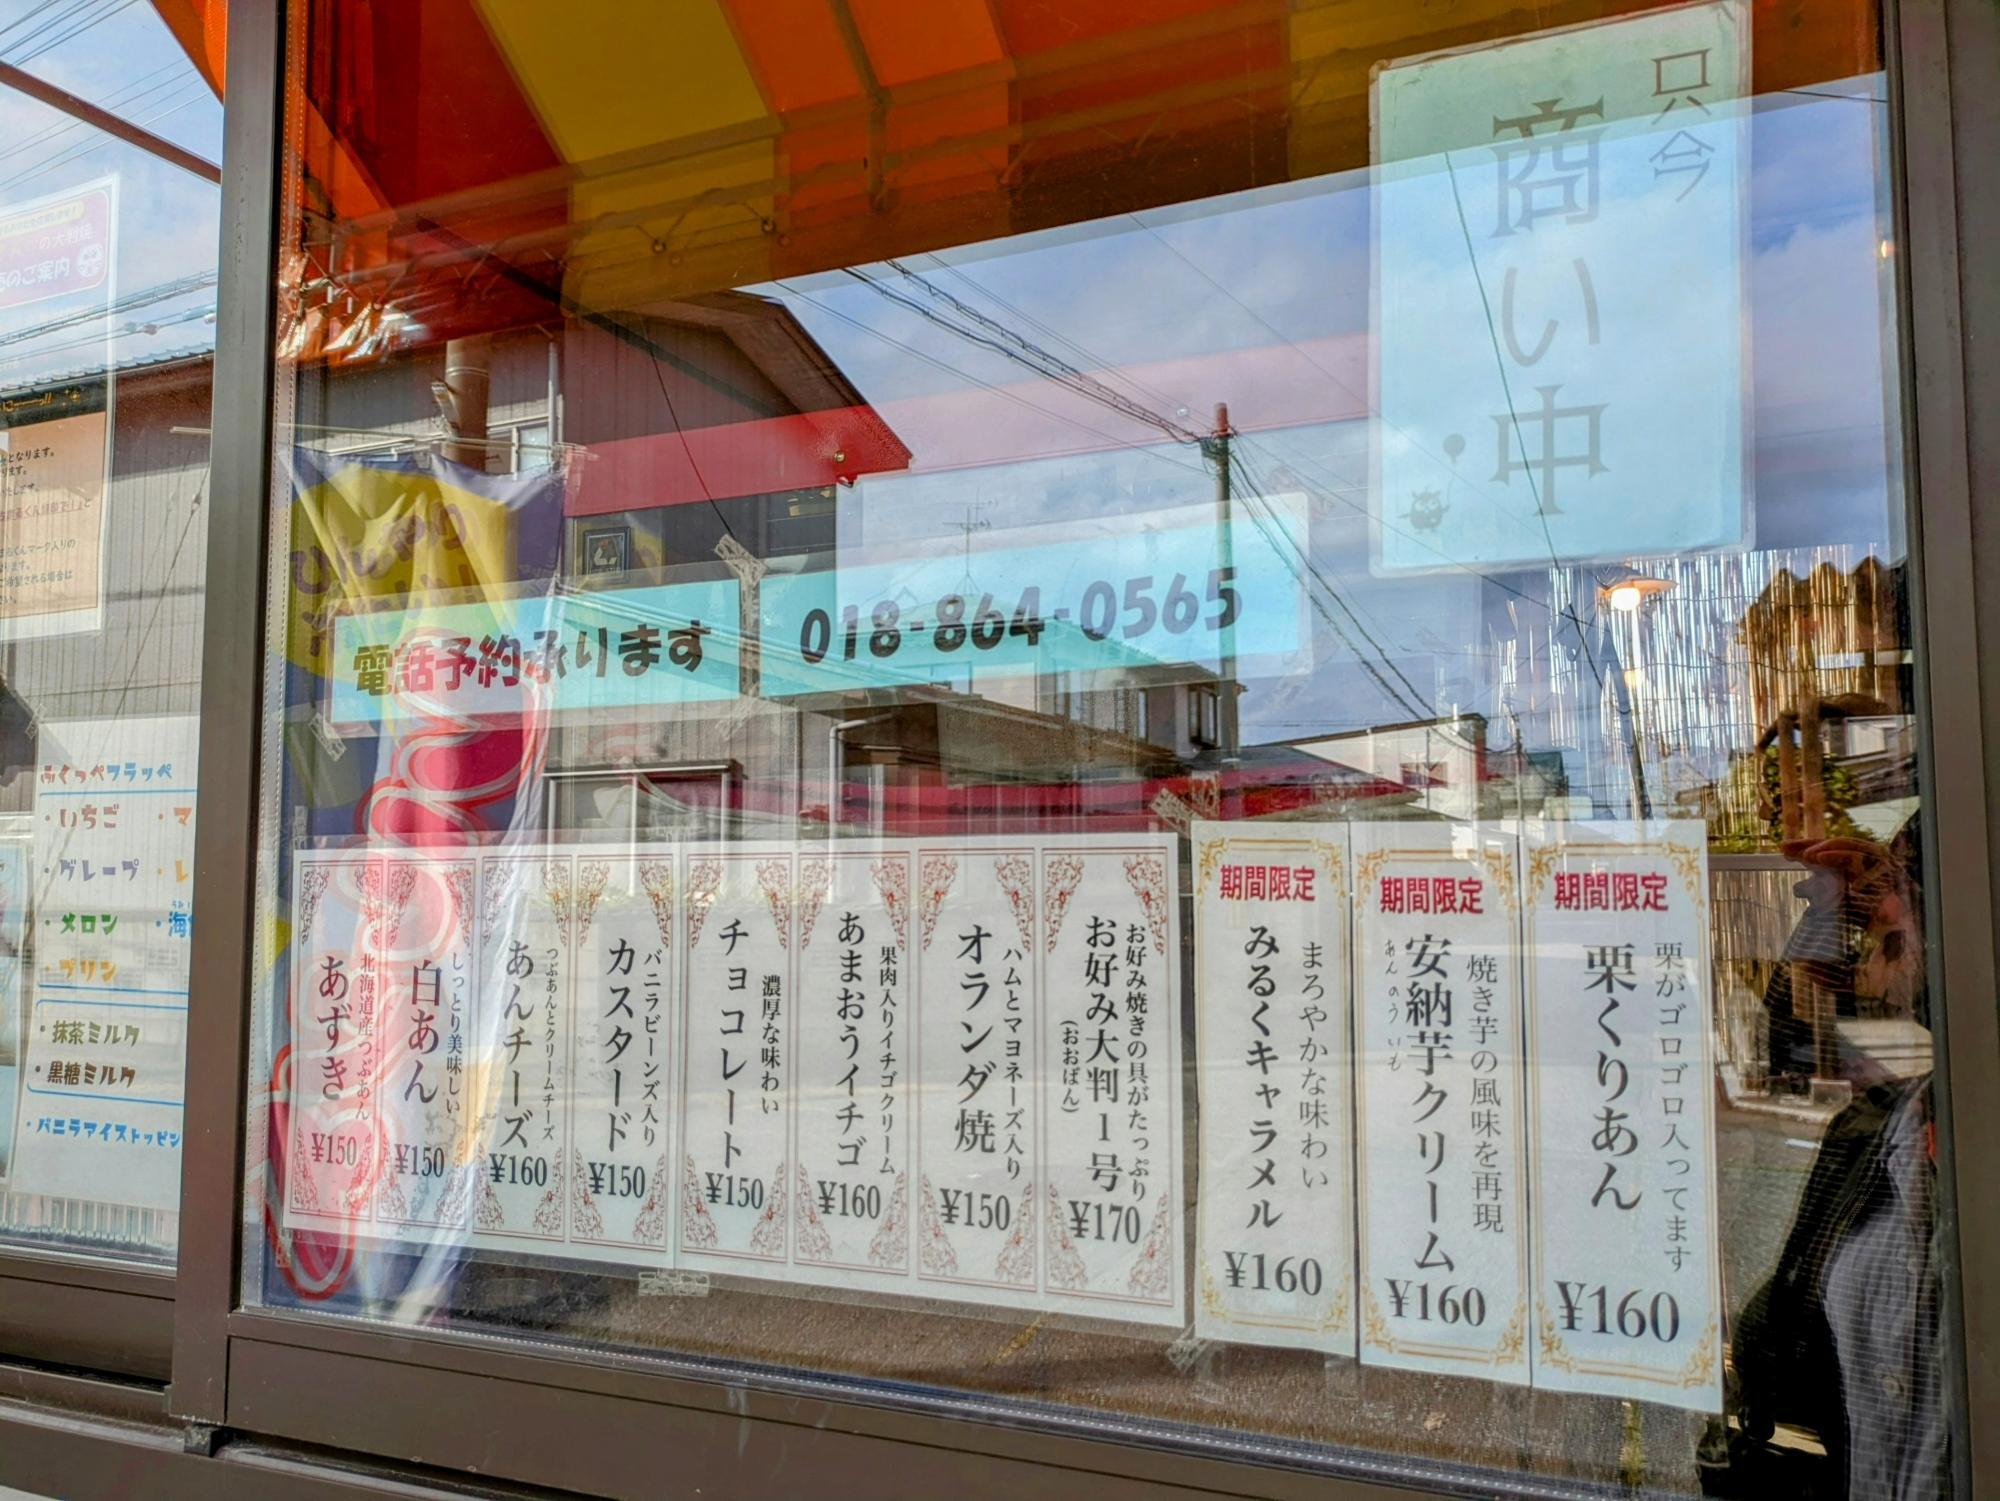 只今
商い中
電話予約承ります
018-864-0565
期間限定
栗がゴロゴロ入ってます
栗くりあん
¥160
期間限定
焼き芋の風味を再現
安納芋クリーム
あんのういも
¥160
期間限定
まろやかな味わい
みるくキャラメル
¥160
お好み焼きの具がたっぷり
お好み大判1号
(おおばん)
¥170
ハムとマヨネーズ入り
オランダ焼
¥150
果肉入りイチゴクリーム
あまおうイチゴ
¥160
濃厚な味わい
チョコレート
¥150
バニラビーンズ入り
カスタード
¥150
つぶあんとクリームチーズ
あんチーズ
¥160
しっとり美味しい
白あん
¥150
北海道産つぶあん
あずき
¥150
の大判焼
のご案内
となります。
ふくっぺフラッペ
・いちご
・マ
・グレープ
・レ
・メロン
・海
・プリン
・抹茶ミルク
・黒糖ミルク
・バニラアイストッピン